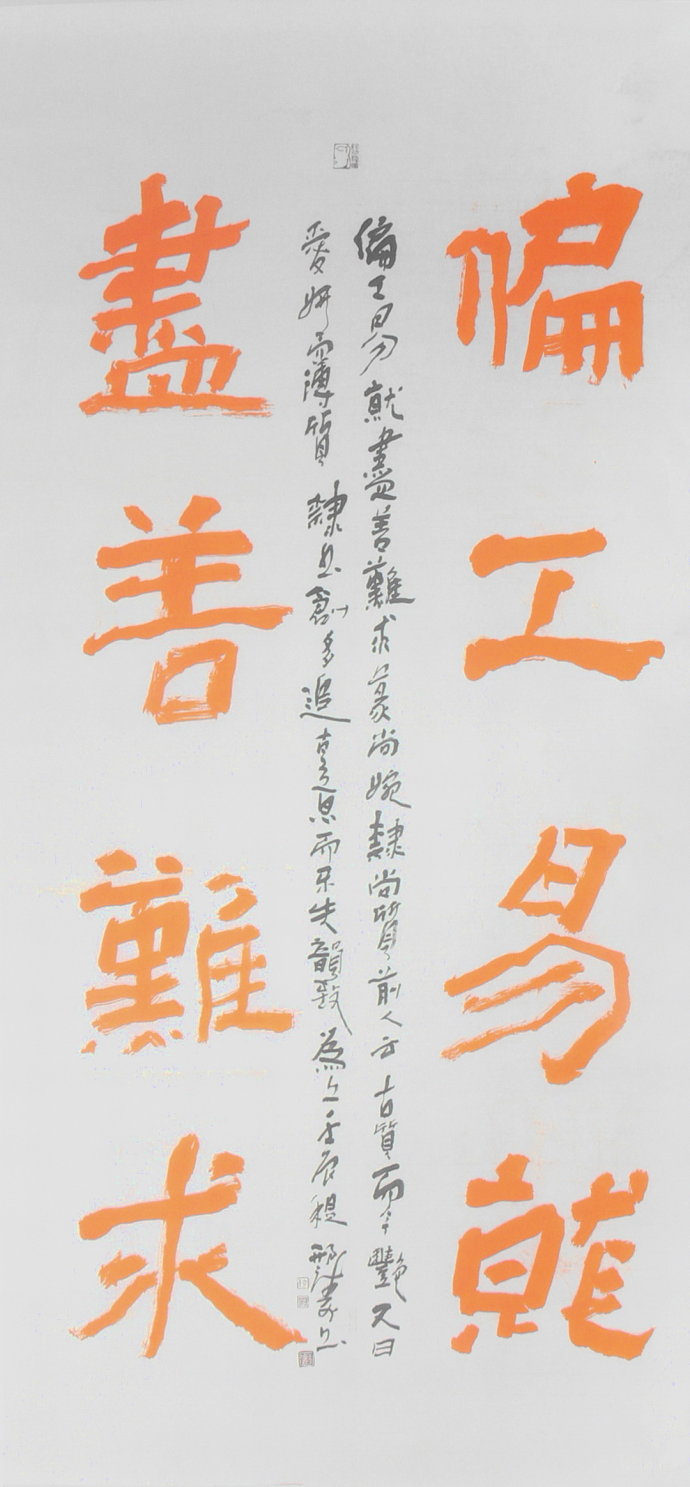 偏工易就
偏工易就盡善難求篆尚婉隸尚質前人云古質而今艷又曰
愛妍而薄質隸書創多追古意思而不失韻致為上壬辰稷
盡善難求